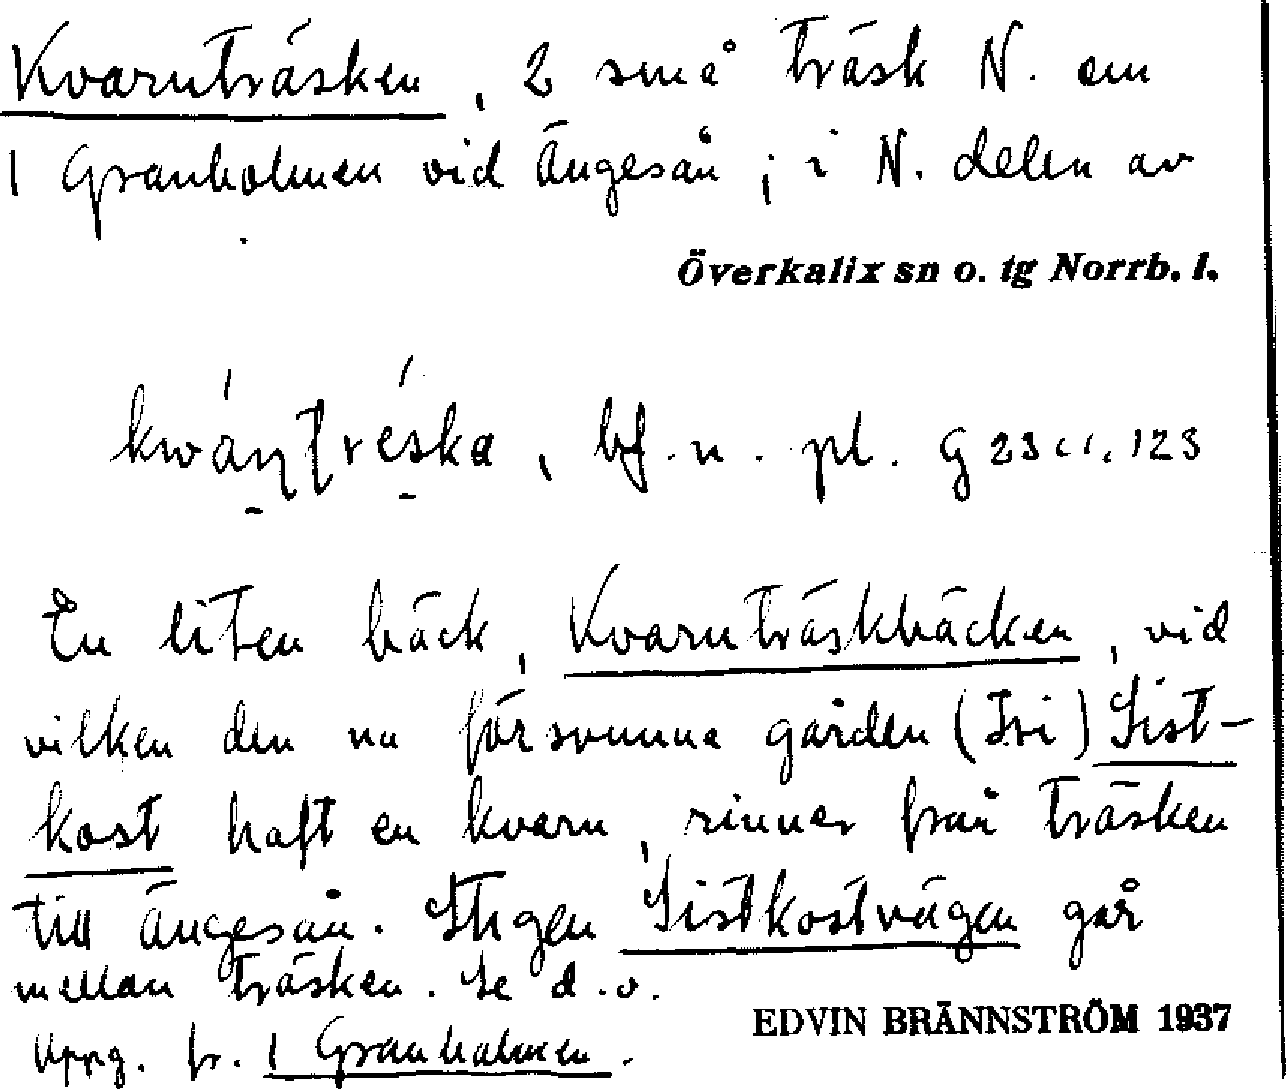 Kvarnträsken, 2 små träsk N. om
1 Granholmen vid Ängesån; i N. delen av
Överkalix sn o. tg Norrb. l.
bf. n. pl.
En liten bäck, Kvarnträskbäcken, vid
vilken den nu försvunna gården (Ivi) Sist-
kost haft en kvarn, rinner från träsken
till Ängesån. Stigen Sistkostvägen går
mellan träsken. Se d. o.
Uppg. fr. 1 Granholmen.
EDVIN BRÄNNSTRÖM 1937